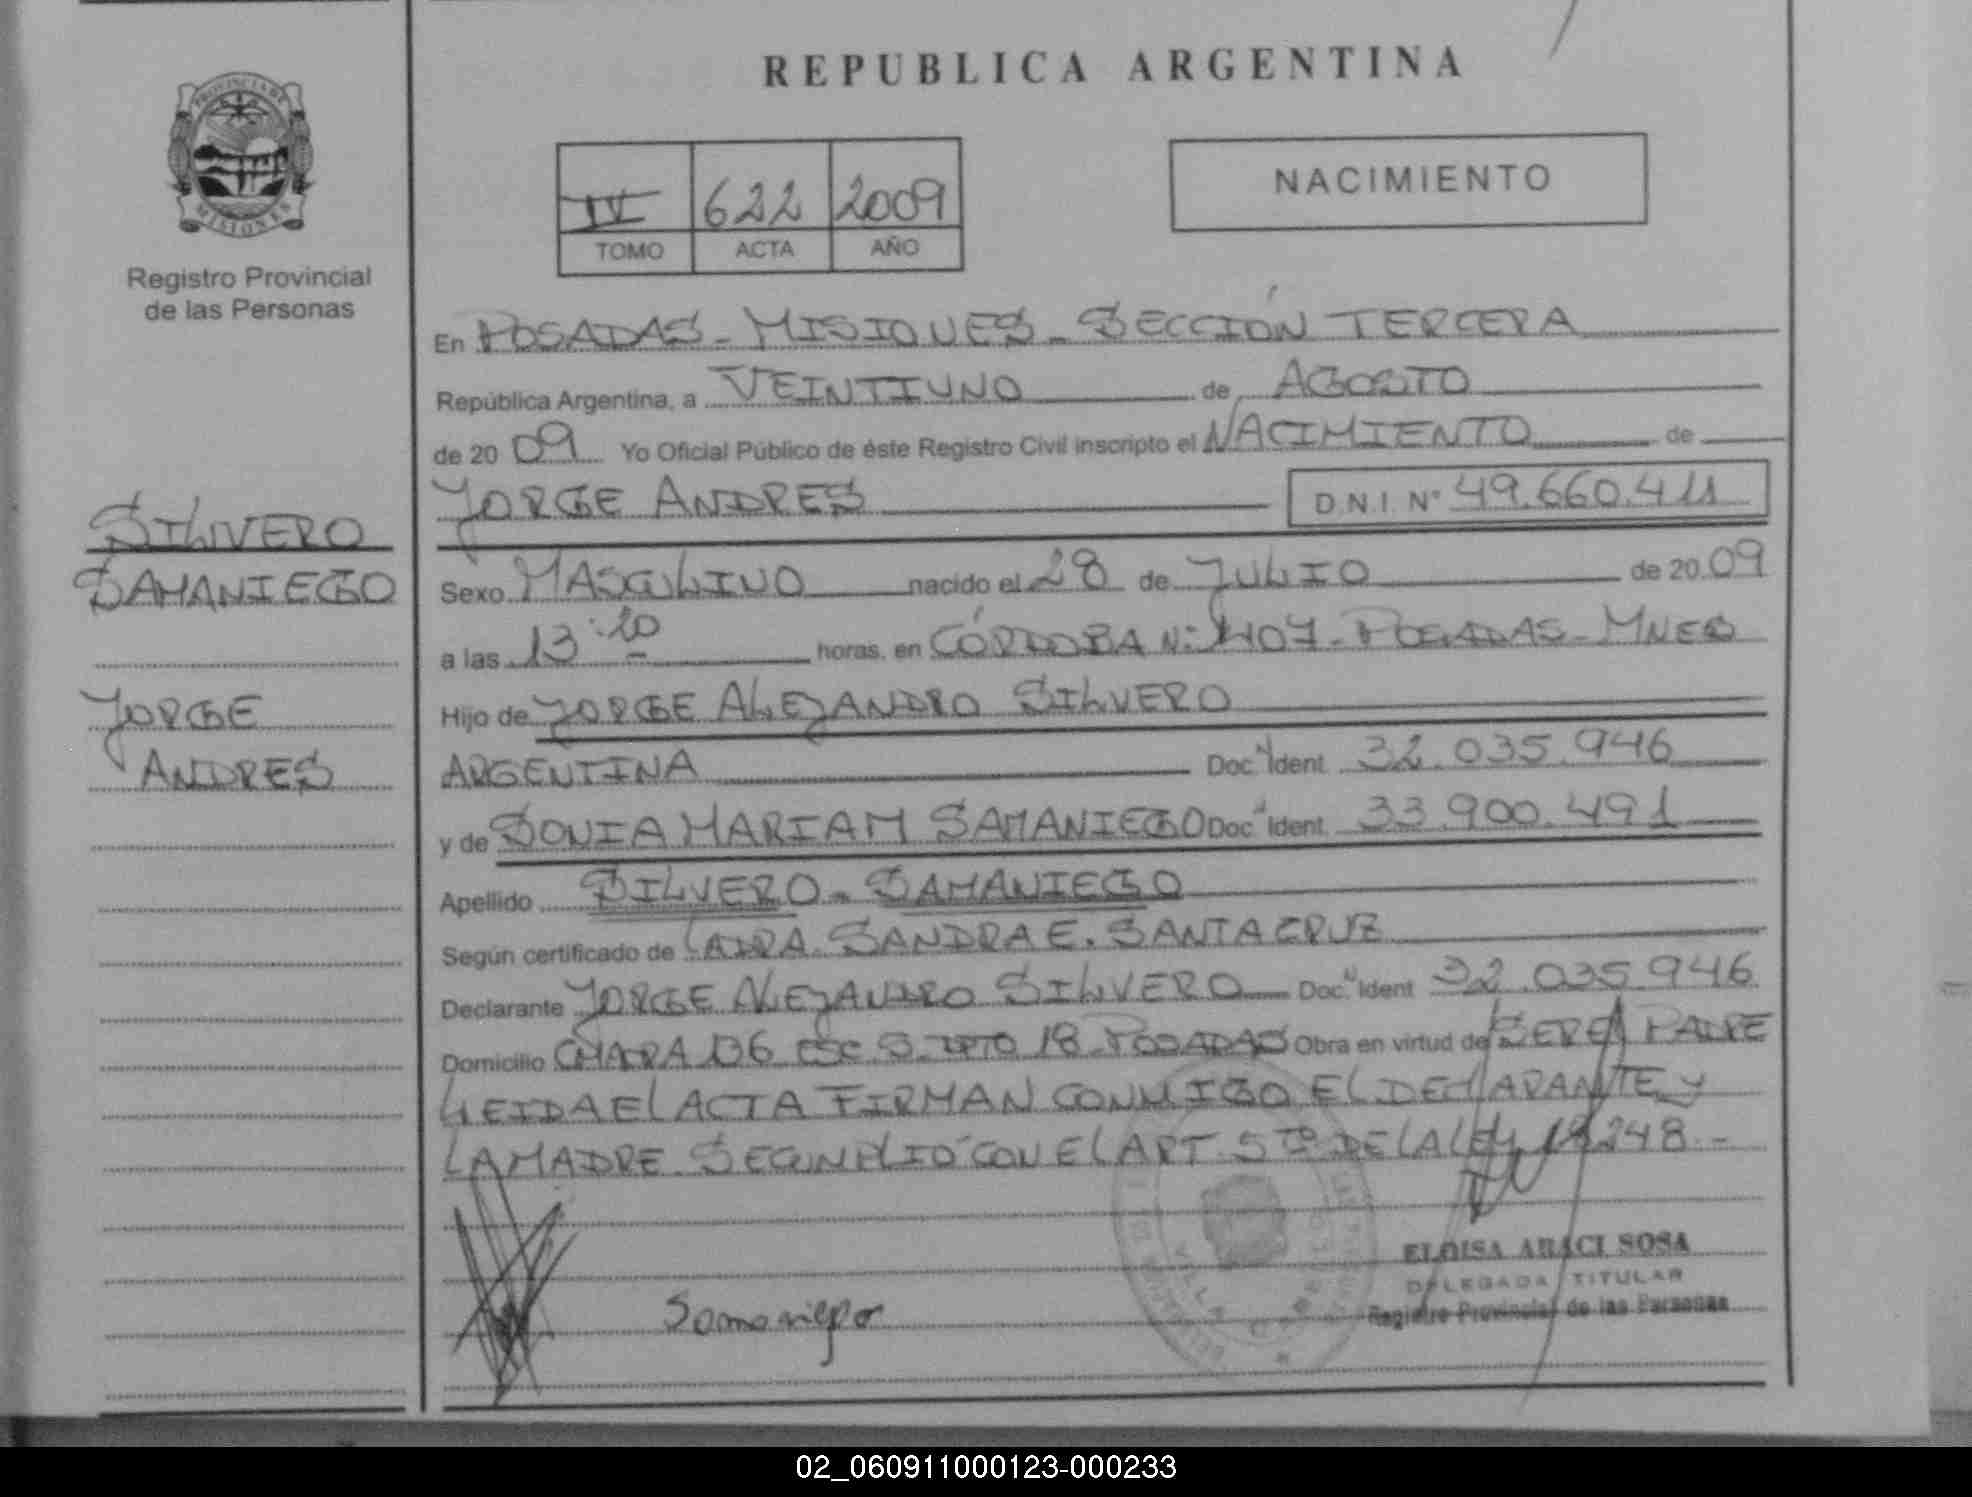 REPUBLICA ARGENTINA
PROVINCIA DE
MISIONES
Registro Provincial
de las Personas
IV 622 2009
TOMO ACTA AÑO
NACIMIENTO
En POSADAS - MISIONES - SECCIÓN TERCERA
República Argentina, a VEINTIUNO de AGOSTO
de 20 09 Yo Oficial Público de éste Registro Civil inscripto el NACIMIENTO de
JORGE ANDRES D.N.I. Nº 49.660.411
SILVERO
SAMANIEGO
JORGE
ANDRES
Sexo MASCULINO nacido el 28 de JULIO de 20 09
a las 13:20 horas, en CÓRDOBA Nº 1407 - POSADAS - MNES
Hijo de JORGE ALEJANDRO SILVERO
ARGENTINA Doc. Ident. 32.035.946
y de SONIA MARIAM SAMANIEGO Doc. Ident. 33.900.491
Apellido SILVERO - SAMANIEGO
Según certificado de SANDRA E. SANTA CRUZ
Declarante JORGE ALEJANDRO SILVERO Doc. Ident 32.035.946
Domicilio CHACRA 136 ESC. 5 - DPTO 18 - POSADAS Obra en virtud de SER EL PADRE
LEIDA EL ACTA FIRMAN CONMIGO EL DECLARANTE y
LA MADRE. SE CUMPLIÓ CON EL ART. 5to DE LA LEY 18.248.-
Samaniego
ELOISA ARACI SOSA
DELEGADA TITULAR
Registro Provincial de las Personas
02_060911000123-000233